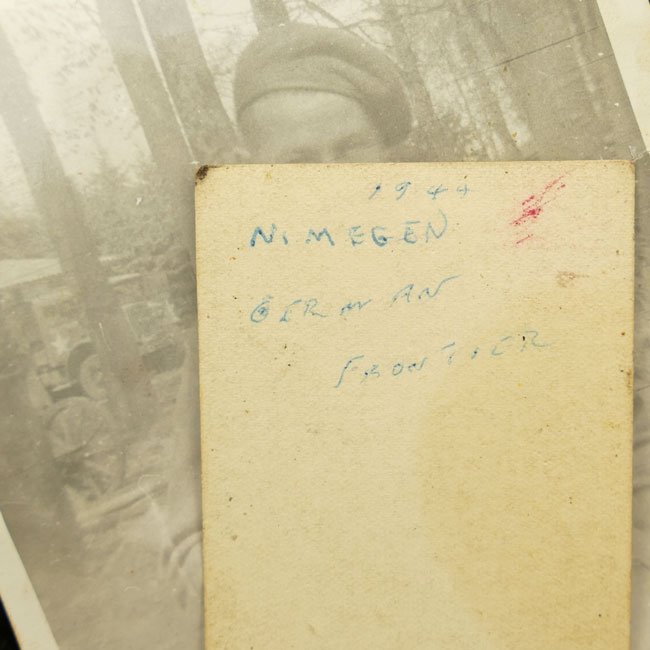 1944
NIMEGEN
GERMAN
FRONTIER